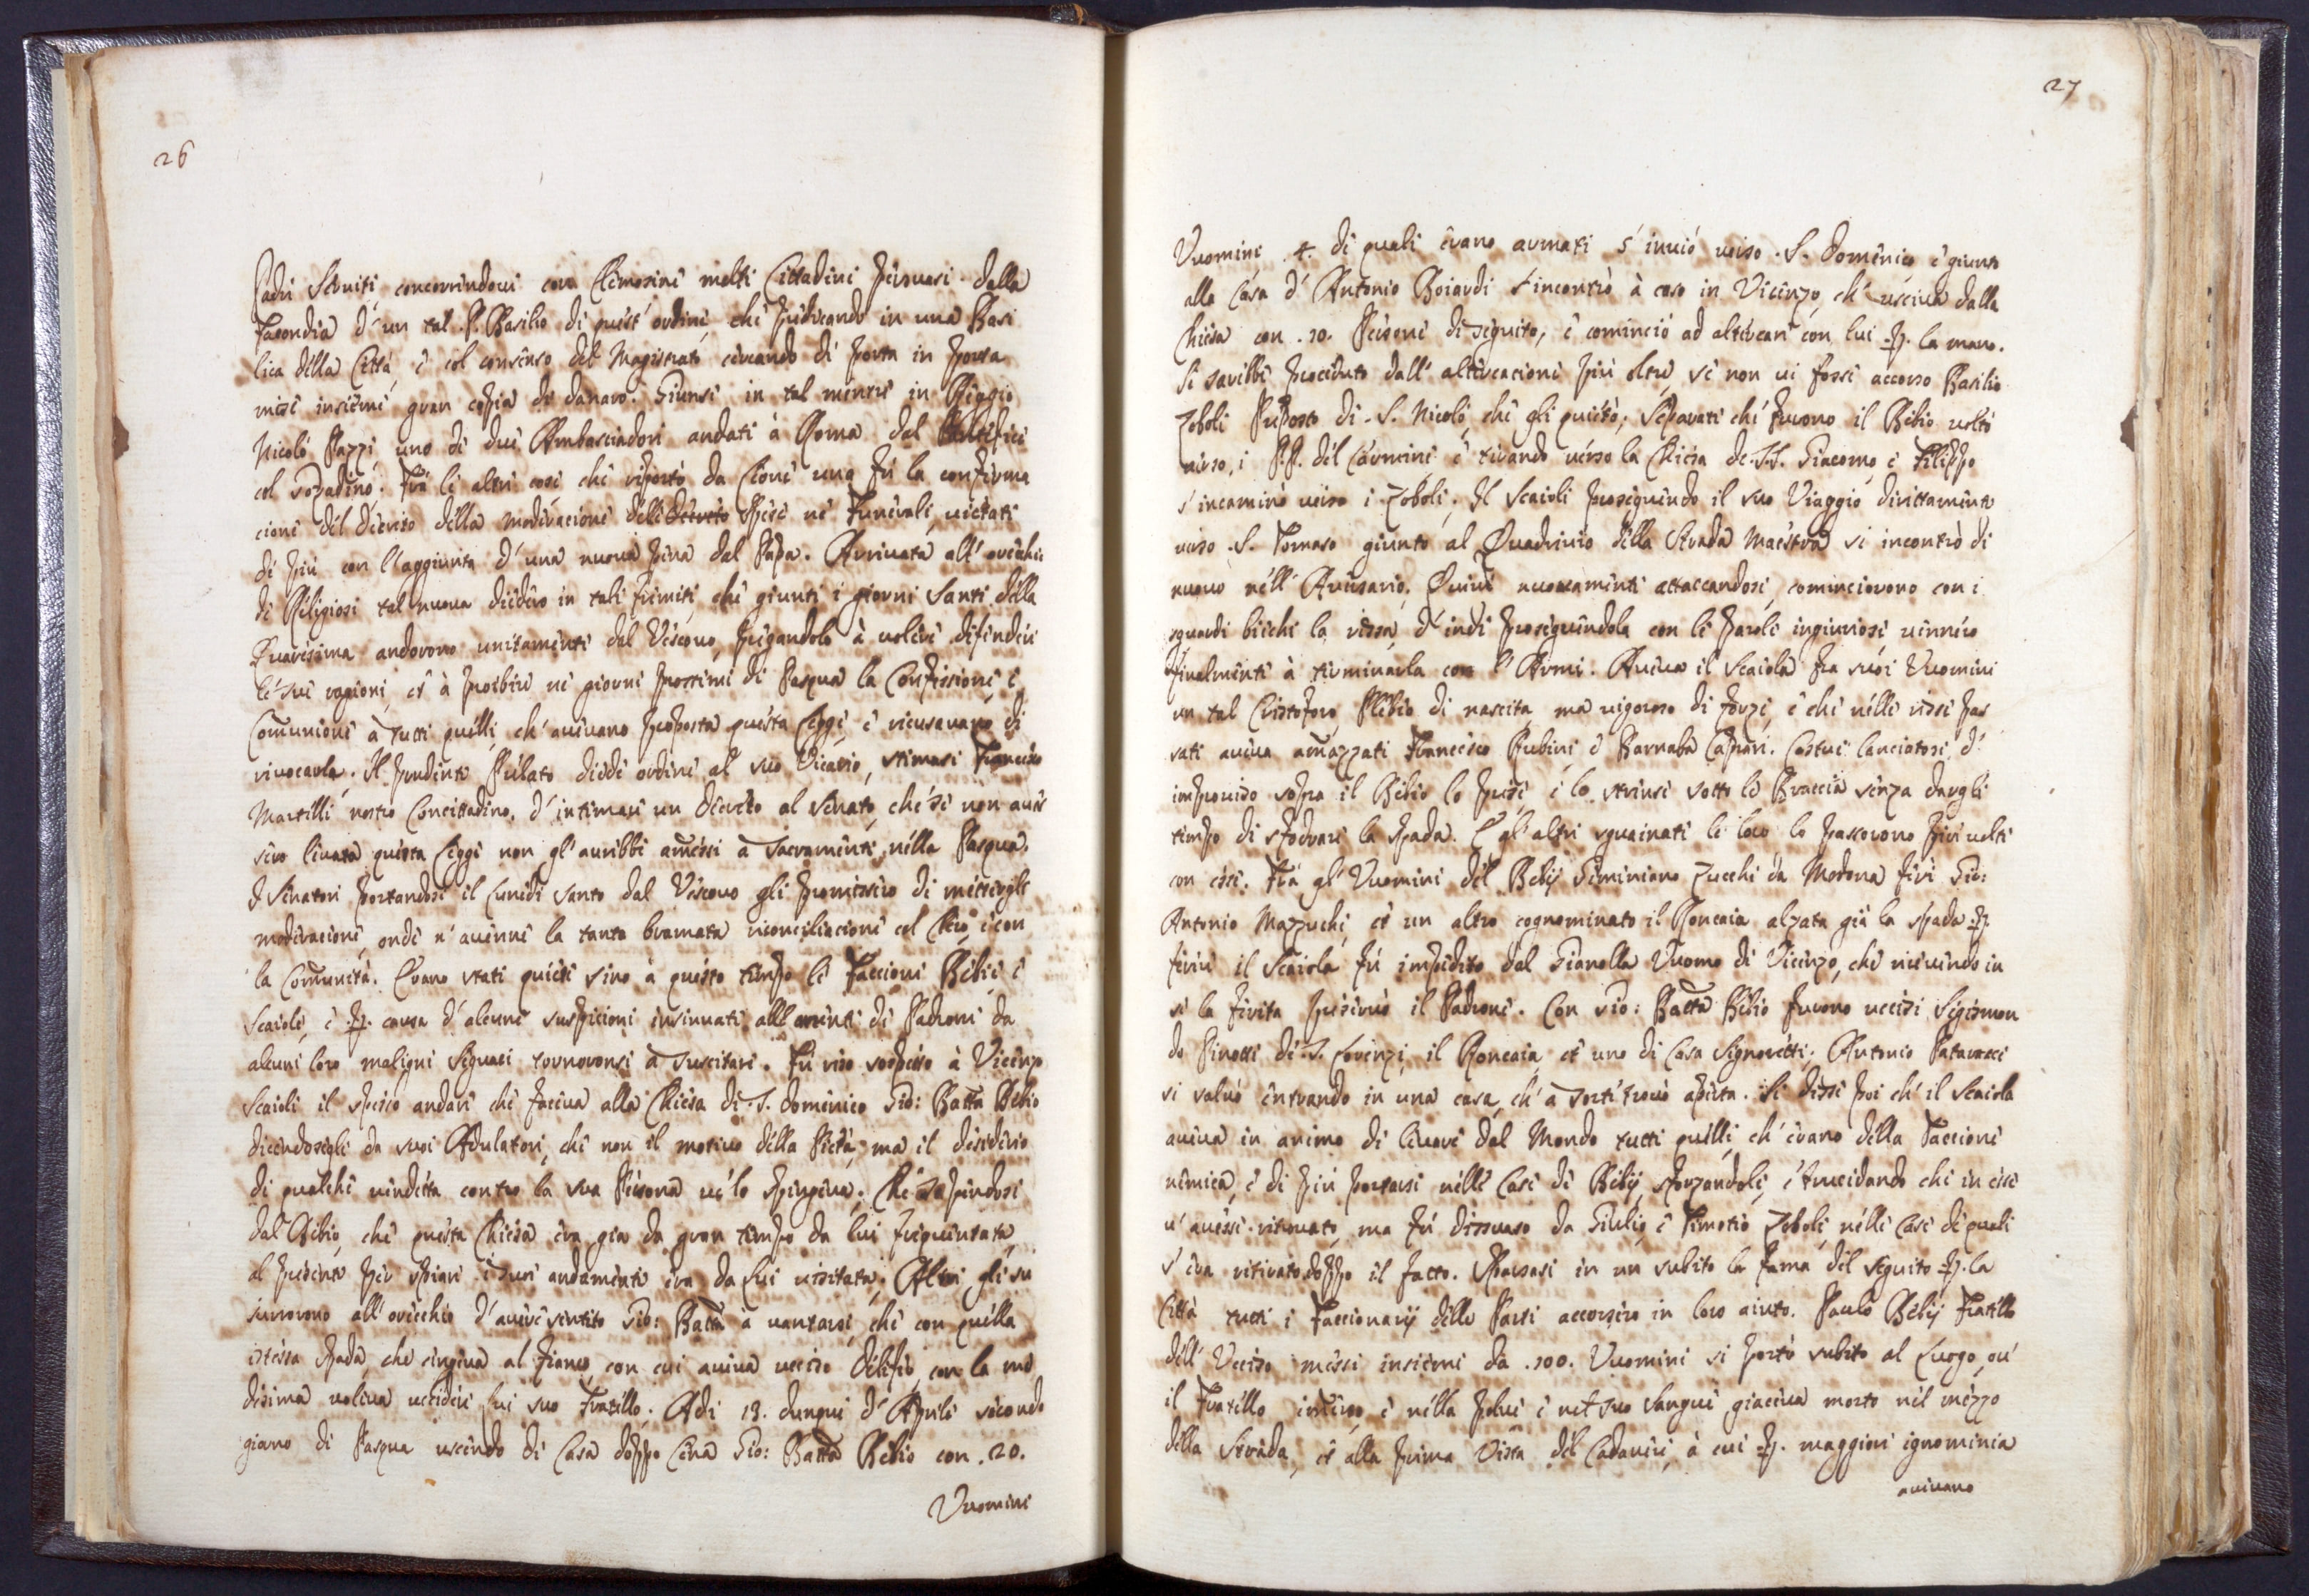 26
Padri Seruiti, concorrendoui con Elemosine molti Cittadini perouasi dalla
Facondia d'un tal P. Basilio di quest' ordine, che predicando in una Basi
lica della Città, e col consenso del Magistrato cercando di porta in porta
mise insieme gran copia di danaro. Giunse in tal mentre in Reggio
Nicolò Pazzi uno di due Ambasciadori andati à Roma dal Pontefice
col Topadino. Frà le altre cose che riportò da Leone una fù la conferma
cione del Decreto della moderacione delle Spese ne Funerali, uietati
di più con l'aggiunta d'una nuoua pena dal Papa. Arriuata all' orecchie
di Religiosi tal nuoua diedero in tali fremiti, che giunti i giorni Santi della
Quaresima andorono unitamente dal Vescouo, pregandolo à uolere difendere
le sue ragioni, et à proibire ne giorni prossimi di Pasqua la Confessione, e
Comunione à tutti quelli, ch' aueuano proposta questa Legge, e ricusauano di
riuocarla. Il prudente Prelato diede ordine al suo Vicario, stimasi Francesco
Martelli nostro Concittadino, d' intimare un decreto al Senato, che se non aues
sero leuata questa Legge non gl' aurebbe amessi a Sacramenti nella Pasqua.
I Senatori portandosi il Lunedì Santo dal Vescouo gli promissero di mettergle
moderacione, onde n' auenne la tanto bramata riconciliacione col Clero, e con
la Comunità. Erano state quiete sino à questo tempo le Faccioni Bebie, e
Scaiole, e p. causa d' alcune suspicioni insinuate alle menti di Padroni da
alcuni loro maligni Seguaci tornoronsi à suscitare. Fù reso sospetto à Vicenzo
Scaioli il spesso andare che faceua alla Chiesa di S. Domenico Gio: Batta Bebio
dicendosegli da suoi Adulatori, che non il motiuo della Pietà, ma il desiderio
di qualche uindetta contro la sua Persona ue' lo spingeua. Che sapendosi
dal Bebio, che questa Chiesa era già da gran tempo da lui frequentata,
al presente per spiare i suoi andamenti era da lui uisitata. Altri gli su
surrorono all' orecchio d' auere sentito Gio: Batta à uantarsi, che con quella
istessa Spada, che cingeua al fianco, con cui aueua ucciso Delfio, con la me
desima uoleua uccidere lui suo Fratello. Adi 13. dunque d' Aprile secondo
giorno di Pasqua uscendo di Casa doppo Cena Gio: Batta Bebio con .20.
Vuomini
27
Vuomini .4. di quali erano armati s' inuiò uerso S. Domenico e giunto
alla Casa d' Antonio Boiardi s' incontrò à caso in Vicenzo, ch' usciua dalla
Chiesa con .10. Persone di seguito, e cominciò ad altercare con lui p. la mano.
Si sarebbe proceduto dall' altercacione più oltre, se non ui fosse accorso Basilio
Zoboli Preposto di S. Nicolò, che gli quietò; Separati che furono il Bebio uoltò
uerso i P.P. del Carmine, e tirando uerso la Chiesa de S.S. Giacomo, e Filippo
s' incaminò uerso i Zoboli; Il Scaioli proseguendo il suo Viaggio direttamente
uerso S. Tomaso giunto al Quadriuio della Strada Maestra si incontrò di
nuouo nell' Auersario. Quiui nuouamente attaccandosi, cominciorono con i
sguardi biechi la rissa, d' indi proseguendola con le parole ingiuriose uennero
finalmente à terminarla con l' Armi. Aueua il Scaiola fra suoi Vuomini
un tal Cristoforo Plebeo di nascita, ma uigoroso di forze, e che nelle risse pas
sate aueua amazzati Francesco Rubini, e Barnaba Caprari. Costui lanciatosi d'
improuiso sopra il Bebio lo prese, e lo strinse sotto le Braccia senza dargli
tempo di sfodrare la Spada. E gl' altri sguainate le loro lo passorono piu uolte
con esse. Frà gl' Vuomini del Bebij Geminiano Zucchi da Modona ferì Gio:
Antonio Mazzuchi, et un altro cognominato il Roncaia alzata già la spada p.
ferire il Scaiola fù impedito dal Gianella Vuomo di Vicenzo, che riceuendo in
se la ferita preseruò il Padrone. Con Gio: Batta Bebio furono uccisi Sigismon
do Pinotti di S. Lorenzo, il Roncaia, et uno di Casa Signoretti; Antonio Patacacci
si saluò entrando in una casa, ch' a sorte trouò aperta. Si disse poi ch' il Scaiola
aueua in animo di leuare dal Mondo tutti quelli, ch' erano della Faccione
nemica, e di più portarsi nelle Case di Bebij, sforzandole, e trucidando chi in esse
u' auesse ritrouato, ma fù dissuaso da Giulio, e Timoteo Zoboli, nelle Case di quali
s' era ritirato doppo il fatto. Sparsasi in un subito la fama del seguito p. la
Città tutti i Faccionarij delle Parti accorsero in loro aiuto. Paulo Bebij Fratello
dell' Ucciso messi insieme da .100. Vuomini si portò subito al Luogo, ou'
il Fratello immerso e nella polue e nel suo sangue giaceua morto nel mezzo
della Strada, et alla prima Vista del Cadauere, à cui p. maggiore ignominia
aueuano